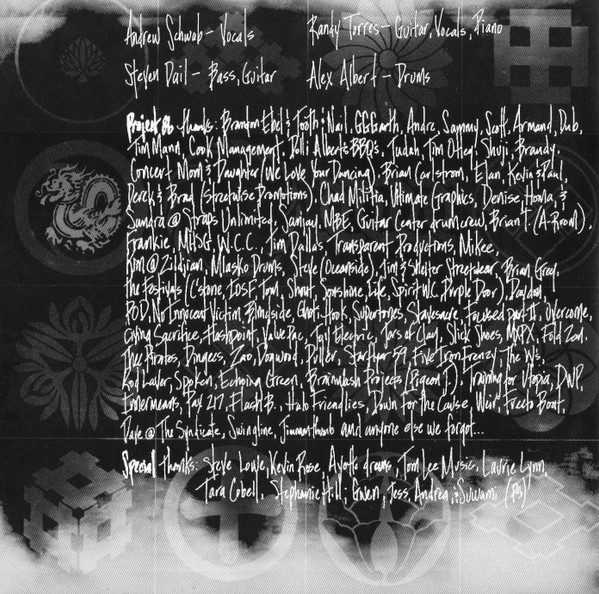 Andrew Schwab - Vocals
Randy Torres - Guitar, Vocals, Piano
Steven Dail - Bass, Guitar
Alex Albert - Drums
Project 86 thanks: Brandon Ebel & Tooth & Nail, GGGarth, Andre, Sammy, Scott, Armand, Dub,
Tim Mann, Cook Management, Alberts BBQs, Judah, Tim Shuji, Brandy,
Concert Mom & Daughter (We Love Your Dancing), Brian Carlstrom, Elan, Kevin & Paul,
Derek & Brad (Streetwise Promotions), Chad Militia, Ultimate Graphics, Denise, Honda, &
Sandra @ Straps Unlimited, Sanjay, MBE, Guitar Center drum crew, Brian T. (A-Room).
Frankie, MHSG, W.C.C., Tim Dallas, Transparent Productions, Mikee,
Kim @ Zildjian, Mlasko Drums, Steve (Oceanside), Tim & Shelter Streetwear, Brian Grey,
The Festivals (C'stone, TOM, Shout, Sonshine, Life, Spirit W.C. Purple Door), Daydon,
POD, No Innocent Victim, Blindside, Ghoti Hook, Supertones, Stavesacre, Focused part II, Overcome,
Crying Sacrifice, Flashpoint, Value Pac, Joy Electric, Jars of Clay, Slick Shoes, MXPX, Fold Zan.
Thee Spivees, Dingees, Zao, Dogwood, Puller, Starflyer 59, Five Iron Frenzy, The W's,
Rod Laver, Spoken, Echoing Green, Brainwash Projects (Pigeon J.), Training for Utopia, DWP,
Innermeans, Pax 217, Flash B., Halo Friendlies, Down For the Cause, Weir, Frecto Boat,
Dave @ The Syndicate, Swingline, Jimmanthumb and anyone else we forgot...
Special thanks: Steve Lowle, Kevin Rose, Ayotte drums, Tom Lee Music, Laurie Lynn,
Tara Cobell, Stephanie Hill; Gwen, Jess, Andrea, & Suwami